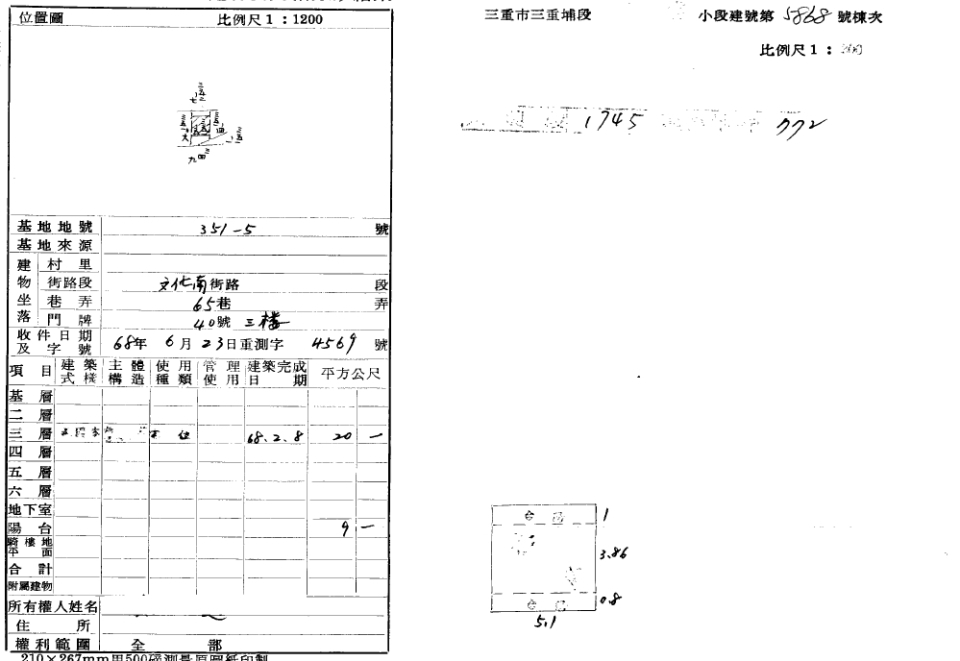 位置圖 比例尺1:1200
三重市三重埔段 小段建號第5868號棟次
比例尺1:
1745 772
基地地號 351-5 號
基地來源
建物坐落 村里
街路段 文化南街路 段
巷弄 65巷 弄
門牌 40號 三樓
收件日期及字號 68年6月23日重測字 4569 號
項目 建築式樣 主體構造 使用種類 管理使用 建築完成日期 平方公尺
基層
二層
三層 68.2.8 20 一
四層
五層
六層
地下室
陽台 9 一
騎樓地平面
合計
附屬建物
所有權人姓名
住所
權利範圍 全部
210×267mm用500磅測量原圖紙印製
1
3.86
0.8
5.1